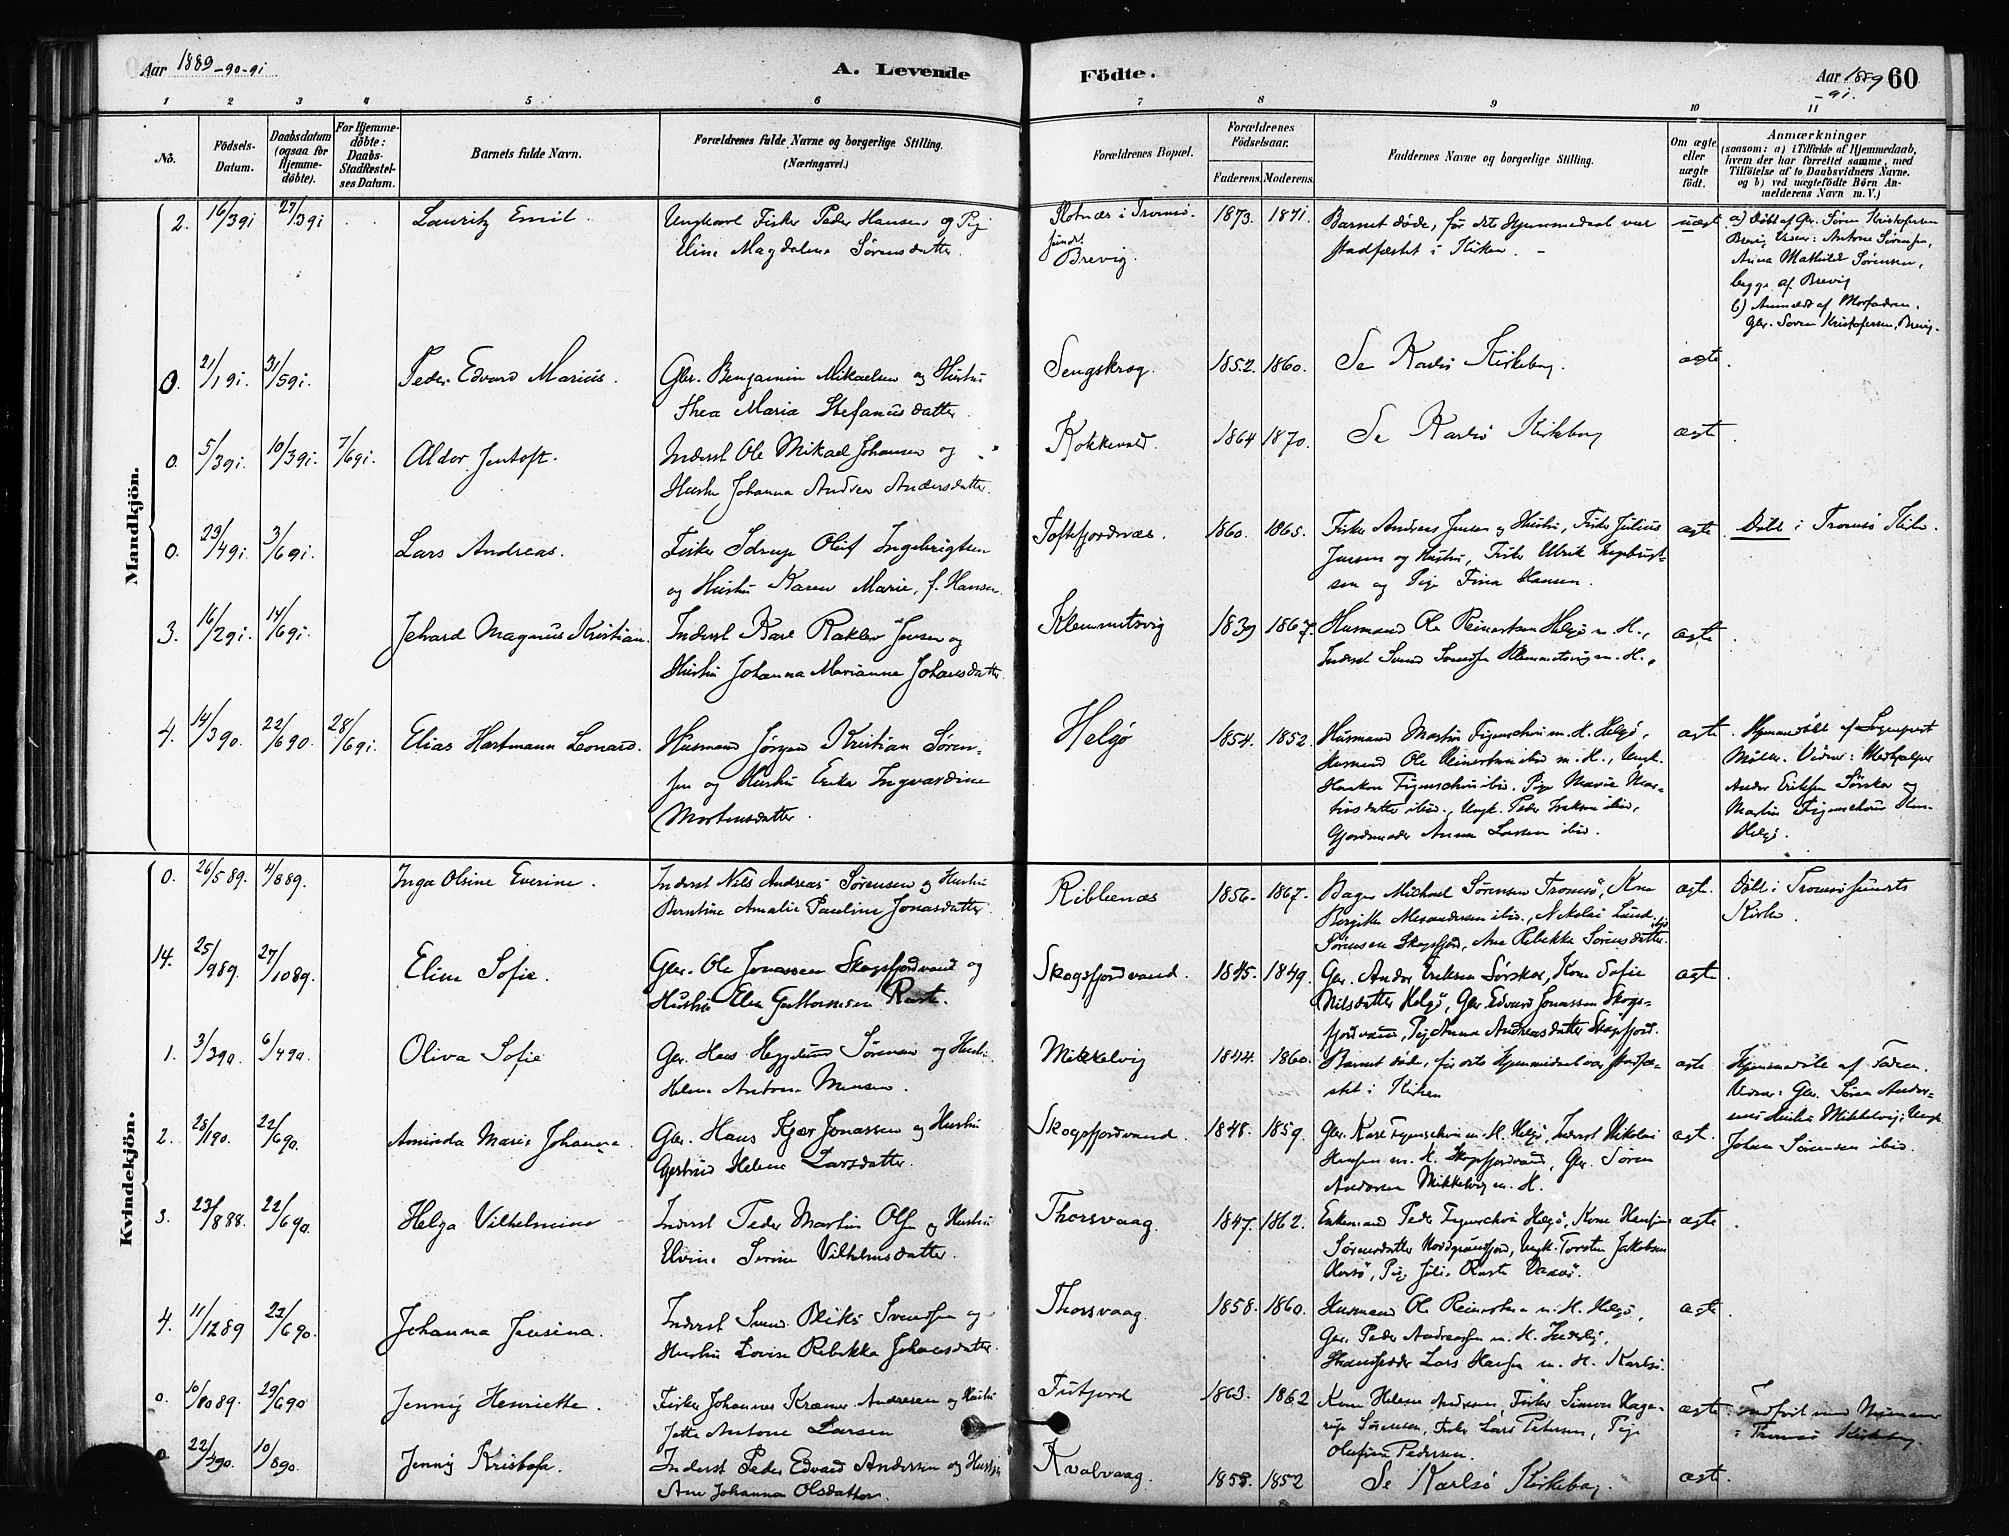 Aar 1889-90-91
A. Levende
Födte.
Aar 1889-91. 60
1 2 3 4 5 6 7 8 9 10 11
No.
Födsels-Datum.
Daabsdatum (ogsaa for Hjemme-döbte).
For Hjemme-döbte: Daabs-Stadfæstel-ses Datum.
Barnets fulde Navn.
Forældrenes fulde Navne og borgerlige Stilling. (Næringsvei.)
Forældrenes Bopæl.
Forældrenes Födselsaar.
Faderens. Moderens.
Faddernes Navne og borgerlige Stilling.
Om ægte eller uægte födt.
Anmærkninger
(saasom: a) i Tilfælde af Hjemmedaab, hvem der har forrettet samme, med Tilföielse af to Daabsvidners Navne. og b) ved uægtefödte Börn An-melderens Navn m. V.)
Mandkjön.
2. 16/3 91 27/3 91 Lauritz Emil. Ungkarl Fisker Peder Hansen og Pige
Eline Magdalena Sørensdatter.
i Tromsø-sund. Brevig. 1873. 1871. Barnet døde, før dets Hjemmedaab var
stadfæstet i Kirken. uægt. a) Døbt af Gbr. Søren Kristofersen
Brevig Vidner: Antone Sørensen,
Anna Mathilde Sørensen,
begge af Brevig
b) Anmeldt af Morfaderen.
Gbr. Søren Kristofersen, Brevig.
0. 21/1 91. 31/5 91. Peder Edvard Marius. Gbr. Benjamin Mikaelsen og Hustru
Thea Maria Stefanusdatter.
Sengskrog. 1852. 1860. Se Karlsø Kirkebog. ægte
0. 5/3 91. 10/3 91. 7/6 91. Aldor Jentoft. Inderst Ole Mikael Johansen og
Hustru Johanna Andrea Andersdatter.
Kokkevold. 1864 1870. Se Karlsø Kirkebog ægte
0. 23/4 91. 3/6 91. Lars Andreas. Fisker Idrup Oluf Ingebrigtsen
og Hustru Karen Marie, f. Hansen.
Toftefjordnæs. 1860. 1865. Fisker Andreas Jensen og Hustru, Fisker Julius
Jensen og Hustru, Fisker Ulrik Ingebrigt-
sen og Pige Fina Hansen. ægte Døbt i Tromsø Kirke.
3. 16/2 91. 14/6 91. Jehard Magnus Kristian. Inderst Karl Jensen og
Hustru Johanna Marianna Johansdatter.
Klemmetsvig 1839 1867. Husmand Ole Reinertsen Helgø m. H.,
Inderst Svend Svendsen Klemmetsvig m. H. ægte
4. 14/3 90. 22/6 90. 28/6 91. Elias Hartmann Leonard. Husmand Jørgen Kristian Søren-
sen og Hustru Erika Ingvardine
Mortensdatter.
Helgø 1854. 1852 Husmand Martin Figenschou m. H. Helgø,
Husmand Ole Reinertsen ibid m. H., Ungk.
Haakon Figenschou ibid. Pige Marie Mar-
tinsdatter ibid, Ungk. Peder ibid,
Gjordemoder Anna Larsen ibid. ægte. Hjemmedøbt af Sogneprest
Møller. Vidner: Medhjælper
Andor Eriksen Sørskar og
Martin Figenschou
Helgø.
Kvindekjön.
0. 26/5 89. 4/8 89. Inga Olsine Everine. Inderst Nils Andreas Sørensen og Hustru
Berntine Amalie Pauline Jonasdatter.
Ribbenæs 1856- 1867. Bager Michael Sørensen Tromsø, Kone
Birgitte Alexandersen ibid., Nikolai
Sørensen Skogsfjord, Ane Rebekka Sørensdatter. ægt. Døbt i Tromsøsundets
Kirke.
14. 25/9 89. 27/10 89. Eline Sofie. Gbr. Ole Jonassen Skogsfjordvand og
Hustru Elen Guttormsen Raste.
Skogsfjordvand. 1845. 1849. Gbr. Andor Eriksen Sørskar, Kone Sofie
Nilsdatter Helgø, Gbr. Edvard Jonassen Skogs-
fjordvand, Pige Anna Andreasdatter Skogsfjord. ægte
1. 3/3 90. 6/4 90. Oliva Sofie Gbr. Hans Heggelund Sørensen og Hustru
Helene Antone Monsen.
Mikkelvig 1844. 1860. Barnet døde, før dets Hjemmedaab var stadfæ-
stet i Kirken ægte Hjemmedøbt af Faderen.
Vidner: Gbr. Søren Andor-
sens Hustru Mikkelvig; Ungk.
Johan Sørensen ibid.
2. 28/1 90. 22/6 90. Aminda Marie Johanne. Gbr. Hans Kjær Jonassen og Hustru
Gjertrud Helene Larsdatter.
Skogsfjordvand. 1848. 1859. Gbr. Karl Figenschou m. H. Helgø, Inderst Nikolai
Hansen m. H. Skogsfjordvand, Gbr. Søren
Andorsen Mikkelvig m. H. ægt.
3. 23/8 88. 22/6 90. Helga Vilhelmine Inderst Peder Martin Olsen og Hustru
Elvine Serine Vilhelmsdatter.
Thorsvaag. 1847. 1862. Enkemand Peder Figenschou Helgø, Kone
Sørensdatter Nordgrundfjord, Ungk. Torsten Jakobsen
Pige Julie Raste Vannø. ægte
4. 11/12 89 23/6 90. Johanna Jensina. Inderst Svend Svendsen og
Hustru Lovise Rebekka Johansdatter.
Thorsvaag. 1858. 1860. Husmand Ole Reinertsen m. H. Helgø,
Gbr. Peder Andreassen m. H.
Lars Hansen m. H. Karlsø. ægte
0. 10/10 89. 29/6 90 Jenny Henriette. Fisker Johannes Kræmer Andresen og Hustru
Jette Antone Larsen
Tutfjord 1863. 1862 Kone Helene Andresen, Fisker Simon Hage-
rup Sørensen, Fisker Lars Petersen, Pige
Olufine Pedersen. ægte Indført med Nummer
i Tromsø Kirkebog.
0. 22/3 90. 10/8 90. Jenny Kristofa. Inderst Peder Edvard Andersen og Hustru
Ane Johanna Olsdatter.
Kvalvaag. 1858. 1852 Se Karlsø Kirkebog. ægt.